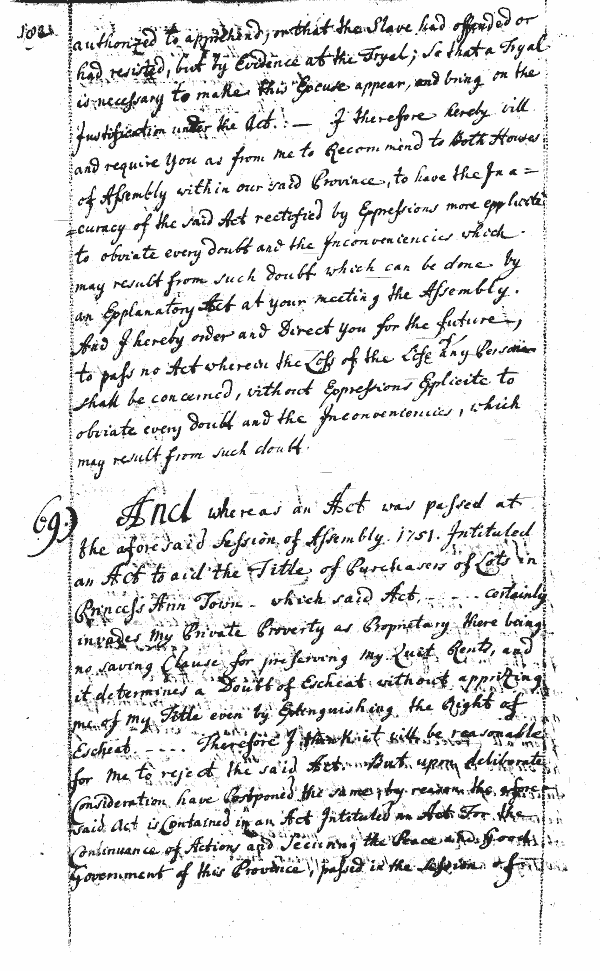 authorized to apprehend; or that the Slave had offended or
had resisted, but by Evidence at the Tryal; So that a Tryal
is necessary to make this Excuse appear, and bring on the
Justification under the Act. : — I therefore hereby will
and require You as from me to Recommend to Both Houses
of Assembly within our said Province, to have the Ina=
=curacy of the said Act rectified by Expressions more explicite
to obviate every doubt and the Inconveniencies which
may result from such doubt which can be done by
an Explanatory Act at your meeting the Assembly.
And I hereby order and Direct you for the future,
to pass no Act wherein the Loss of the Life of any Person
shall be concerned, without Expressions Explicite to
obviate every doubt and the Inconveniencies, which
may result from such doubt
69.) And whereas an Act was passed at
the aforesaid Session of Assembly 1751. Intituled
an Act to aid the Title of Purchasers of Lots in
Princess Ann Town - which said Act, - - - - certainly
invades My Private Property as Proprietary there being
no saving Clause for preserving My Quit Rents, and
it determines a Doubt of Escheat without apprizing
me of my Title even by Extinguishing the Right of
Escheat - - - - Therefore I think it will be reasonable
for Me to reject the said Act. But upon deliberate
Consideration have Postponed the same, by reason the afore
said Act is Contained in an Act Intituled an Act For the
Continuance of Actions and Securing the Peace and Good
Government of this Province, passed in the Session of